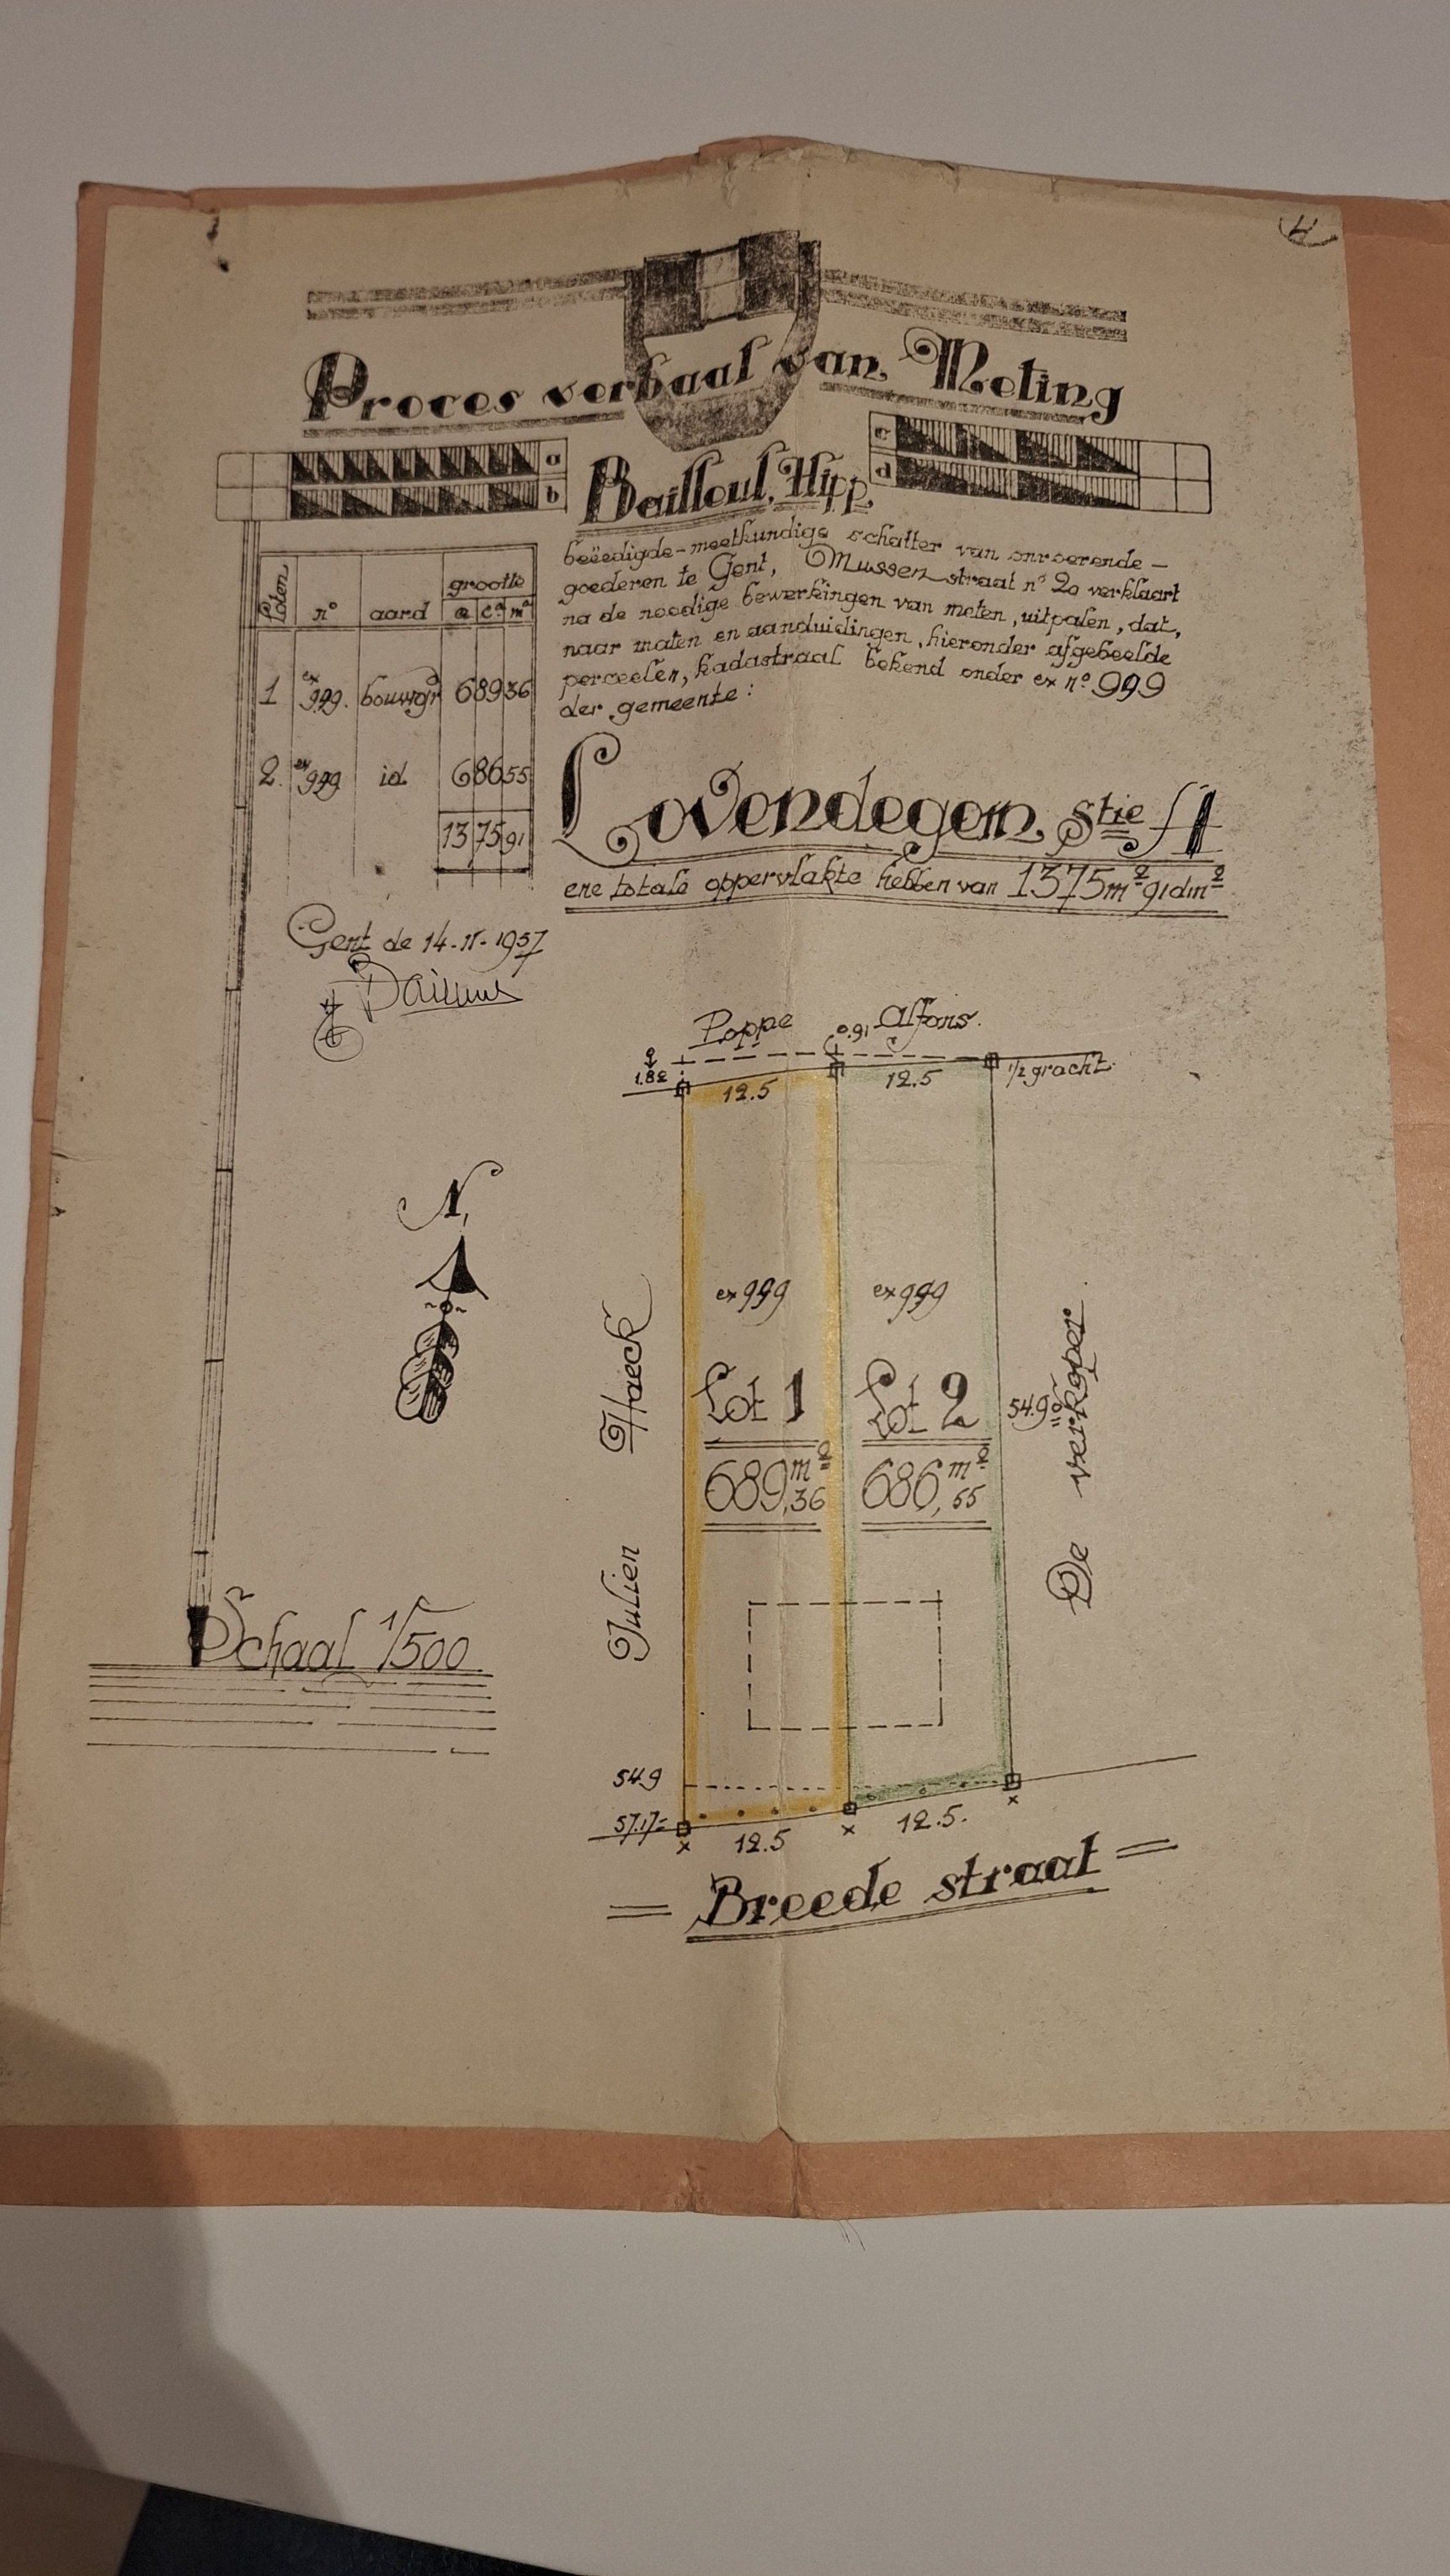 Proces verbaal van Meting
a
b
c
d
Bailloul, Hipp,
beëedigde-meetkundige schatter van onroerende-
goederen te Gent, Mussenstraat n° 20 verklaart
na de noodige bewerkingen van meten, uitpalen, dat,
naar maten en aanduidingen, hieronder afgebeelde
perceelen, kadastraal bekend onder ex n° 999
der gemeente:
Loten n° aard grootte
a ca m²
1 ex 999. bouwgrd 6 89 36
2. ex 999 id 6 86 55
13 75 91
Lovendegem, Stie A
ene totale oppervlakte hebben van 1375m² 91dm²
Gent de 14-11-1957
Poppe Alfons.
0.91
1.82
12.5 12.5 1/2 gracht
N,
ex 999 ex 999
Lot 1 Lot 2
689,36 m² 686,55 m²
Julien Haeck
54.90
De verkoper
Schaal 1/500
54.9
57.17
12.5 12.5.
= Breede straat =